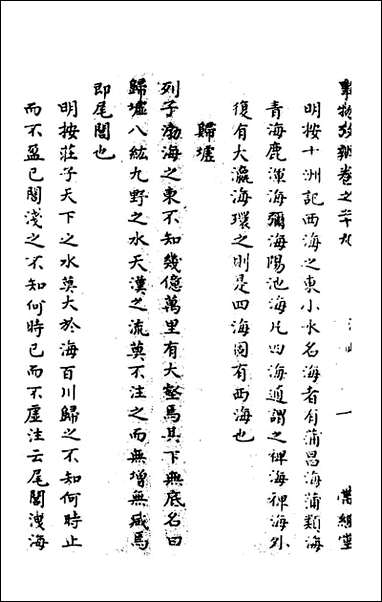 事物考辨卷之二十九 一 営絹堂
明按十洲記西海之東小水名海者有蒲昌海蒲類海
青海鹿渾海彌海陽池海凡四海通謂之裨海裨海外
復有大瀛海環之則是四海固有西海也
歸墟
列子渤海之東不知幾億萬里有大壑焉其下無底名曰
歸墟八紘九野之水天漢之流莫不注之而無增無減焉
即尾閭也
明按莊子天下之水莫大於海百川歸之不知何時止
而不盈已閭淺之不知何時已而不虛注云尾閭洩海